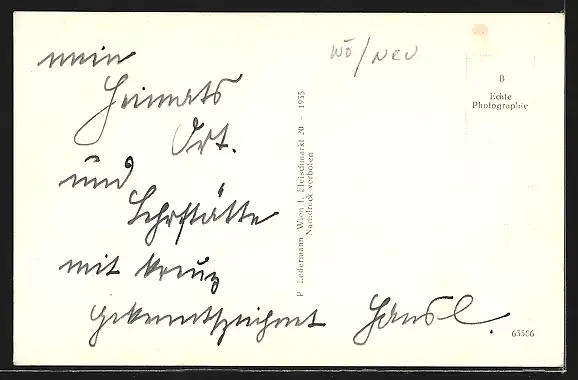 mein
Heimats
Ort.
und
Lehrstätte
mit kreuz
gekenntzeichnet Hansl.
P. Ledermann Wien I, Fleischmarkt 20 - 1935
Nachdruck verboten
wö/NEU
B
Echte
Photographie
63506